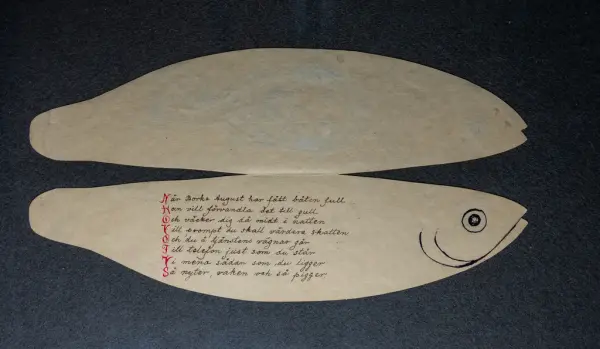 När Borko August har fått båten full
Han vill förvandla det till gull
Och väcker dig då midt i natten
Till prompt du skall värdera skatten
Och du å tjänstens vägnar går
Till telefon just som du står
Vi mena sådär som du ligger
Så nyter, vaken och så pigger.